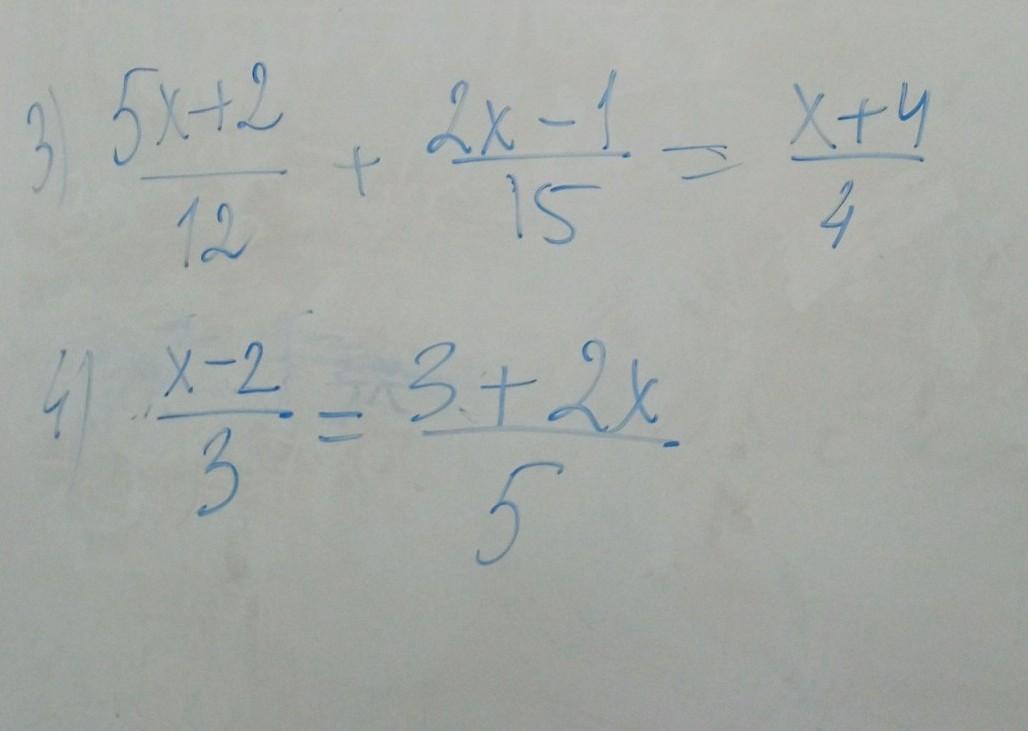 3) (5x+2)/12 + (2x-1)/15 = (x+4)/4
4) (x-2)/3 = (3+2x)/5